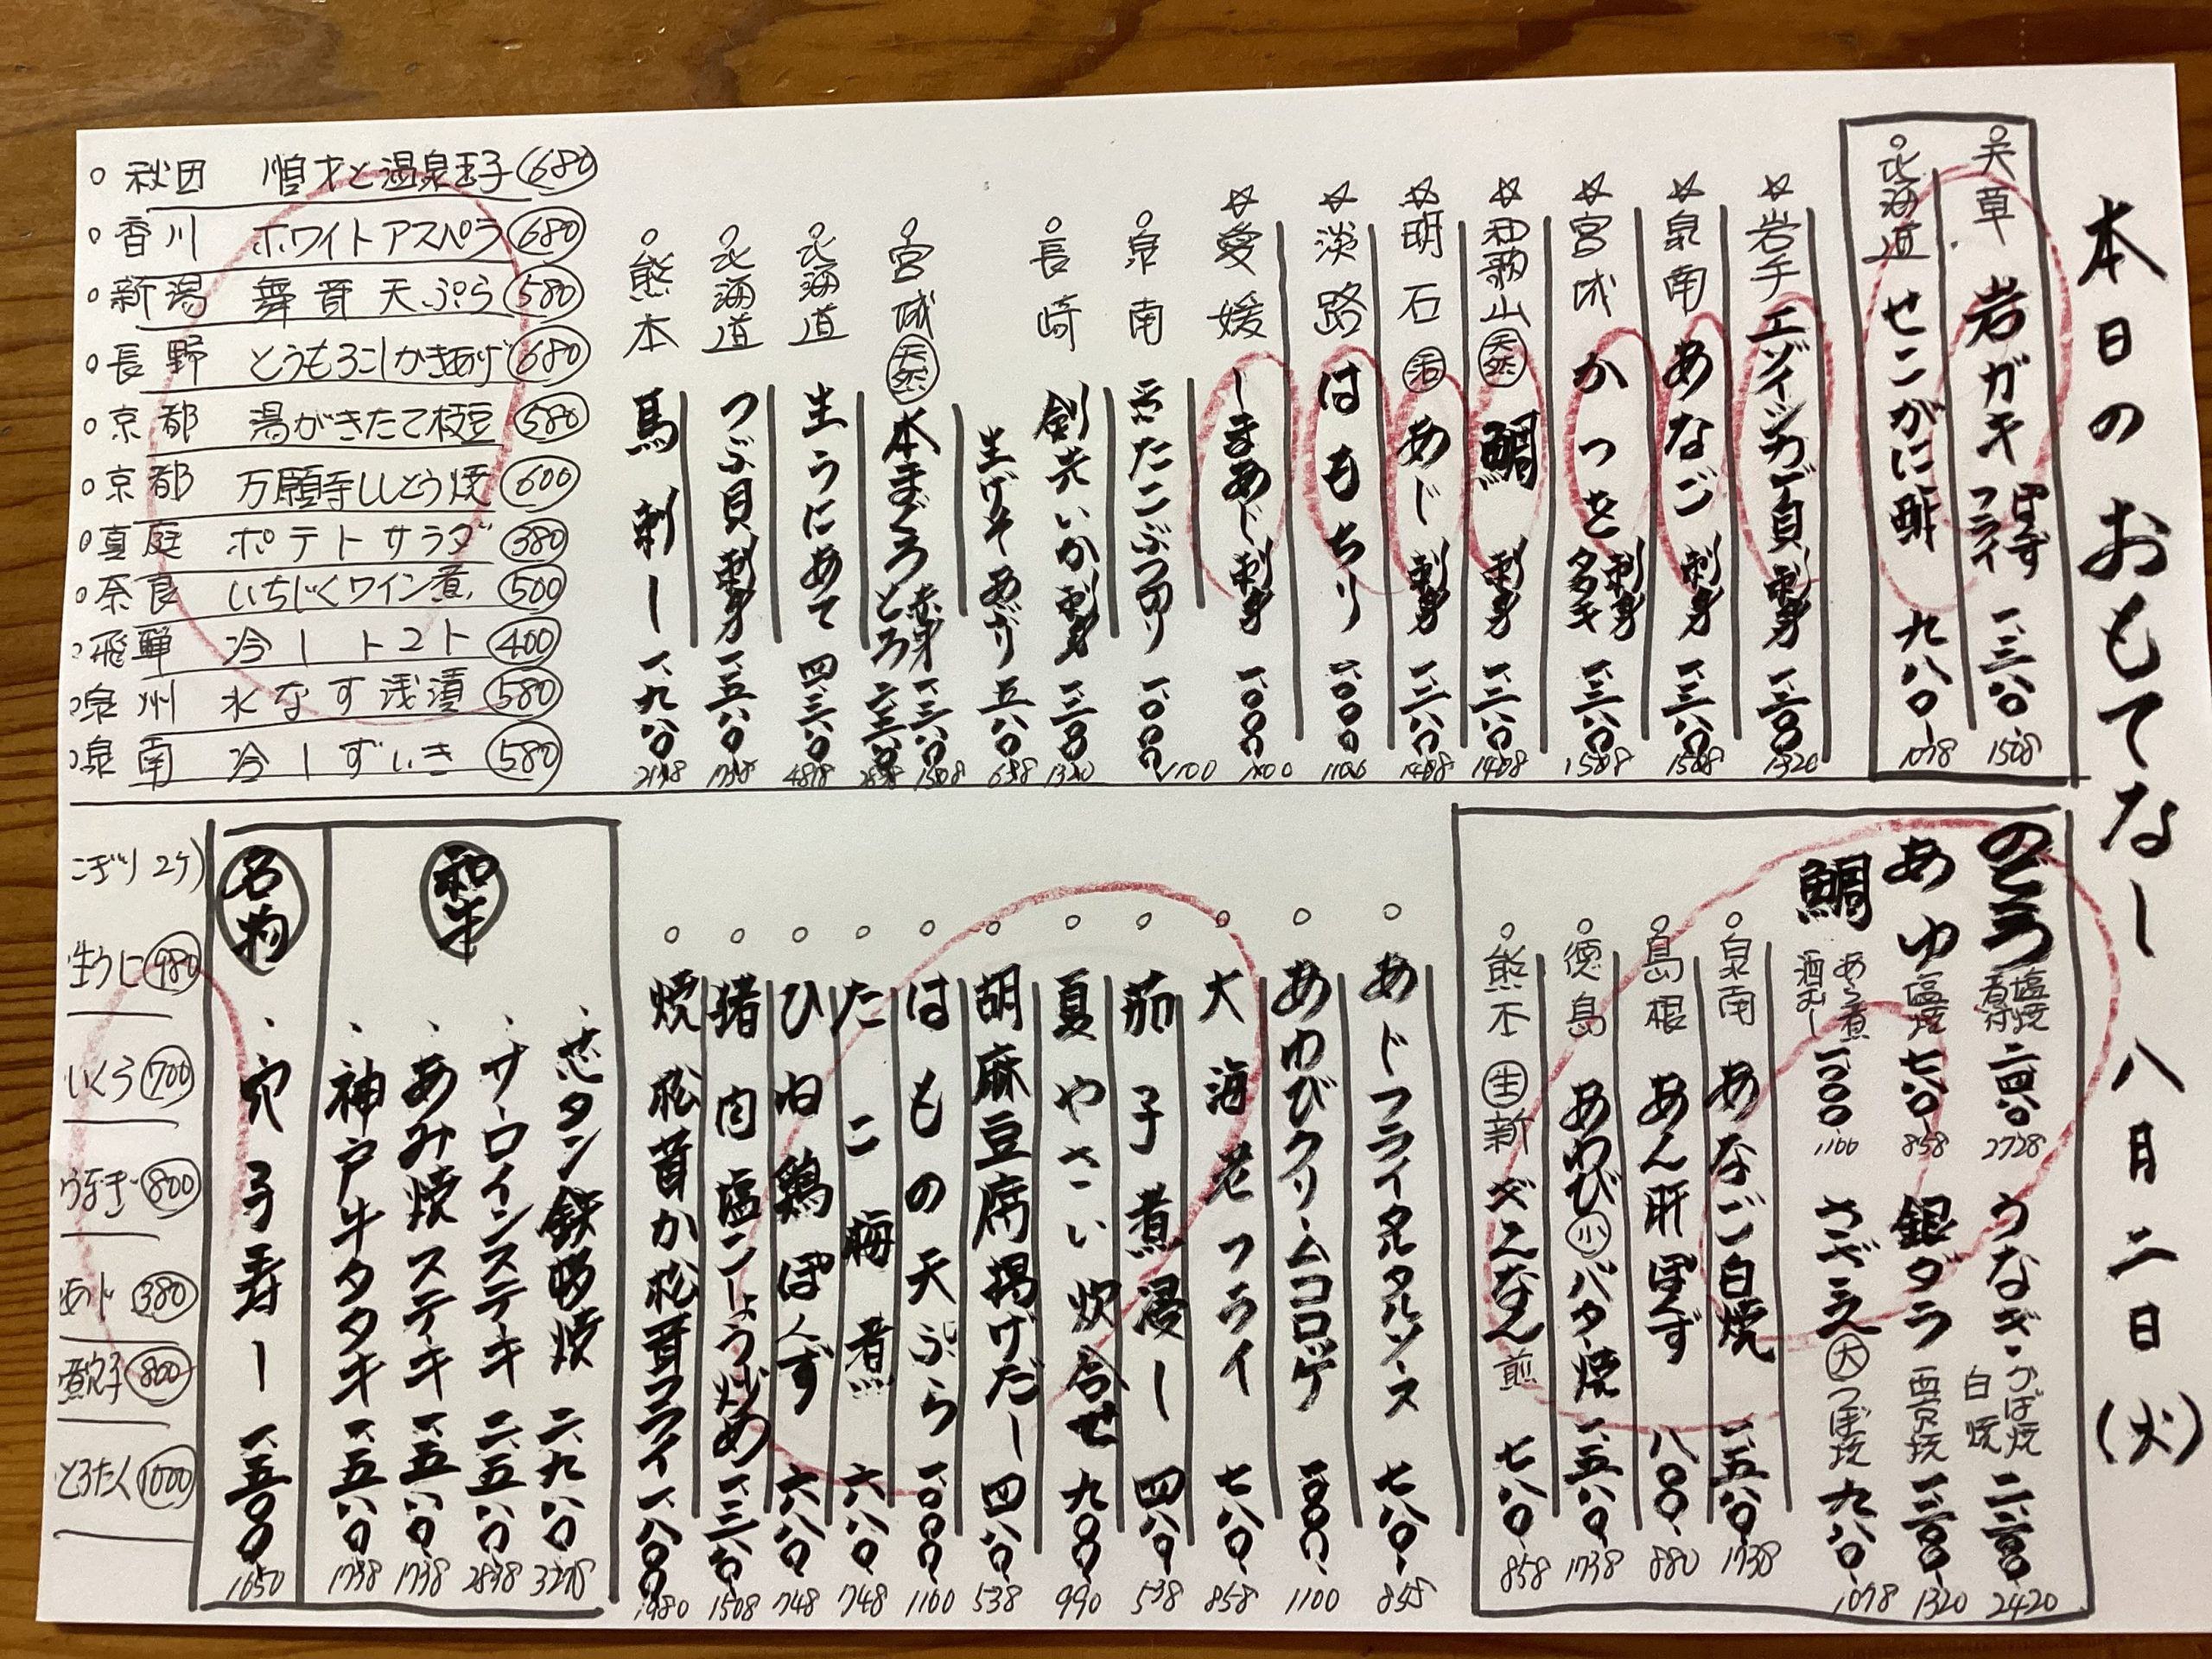 本日のおもてなし 八月二日(火)
天草 岩ガキ ぽんず フライ 一、三八〇 1508
北海道 せこがに酢 九八〇 1078
☆岩手 エゾイシカゲ貝 刺身 一、二〇〇 1320
☆泉南 あなご 刺身 一、三八〇 1508
☆宮城 かつを 刺身 タタキ 一、三八〇 1508
☆和歌山 天然 鯛 刺身 一、二八〇 1408
☆明石 活 あじ 刺身 一、二八〇 1408
☆淡路 はもちり 一、〇〇〇 1100
☆愛媛 しまあじ 刺身 一、〇〇〇 1100
泉南 たこぶつ切り 一、〇〇〇 1100
長崎 剣先いか刺身 一、二〇〇 1320
生げそあぶり 五八〇 638
宮城 天然 本まぐろ 赤身 一、三八〇 1508
とろ
北海道 生うにあて 四、三八〇 4818
北海道 つぶ貝刺身 一、五八〇 1738
熊本 馬刺し 一、九八〇 2178
秋田 順才と温泉玉子 680
香川 ホワイトアスペラ 680
新潟 舞茸天ぷら 580
長野 とうもろこしかきあげ 680
京都 湯がきたて枝豆 580
京都 万願寺ししとう焼 600
真庭 ポテトサラダ 380
奈良 いちじくワイン煮 500
飛騨 冷しトマト 400
泉州 水なす浅漬 580
泉南 冷しずいき 580
のどぐろ 塩焼 煮付 二、四八〇 2728
うなぎ かば焼 白焼 二、二〇〇 2420
あゆ 塩焼 七八〇 858
銀ダラ 西京焼 一、二〇〇 1320
鯛 あら煮 酒むし 一、〇〇〇 1100
さざえ 大 つぼ焼 九八〇 1078
泉南 あなご白焼 一、五八〇 1738
島根 あん肝ぽんず 八〇〇 880
徳島 あわび 小 バター焼 一、五八〇 1738
熊本 生 新 ぎんなん 煎 七八〇 858
あじフライタルタルソース 七八〇 858
あわびクリームコロッケ 一、〇〇〇 1100
大海老フライ 七八〇 858
茄子煮浸し 四八〇 538
夏やさい炊合せ 九〇〇 990
胡麻豆腐揚げだし 四八〇 538
はもの天ぷら 一、〇〇〇 1100
たこ梅煮 六八〇 748
ひね鶏ぽんず 六八〇 748
猪肉塩こしょう炒め 一、三八〇 1508
焼松茸か松茸フライ 一、八〇〇 1980
和牛
芯タン鉄板焼 二、九八〇 3278
サーロインステーキ 二、五八〇 2838
あみ焼ステーキ 一、五八〇 1738
神戸牛タタキ 一、五八〇 1738
名物
穴子寿し 一、五〇〇 1650
にぎり 2ヶ
生うに 980
いくら 700
うなぎ 800
あじ 380
煮穴子 800
とろたく 1000